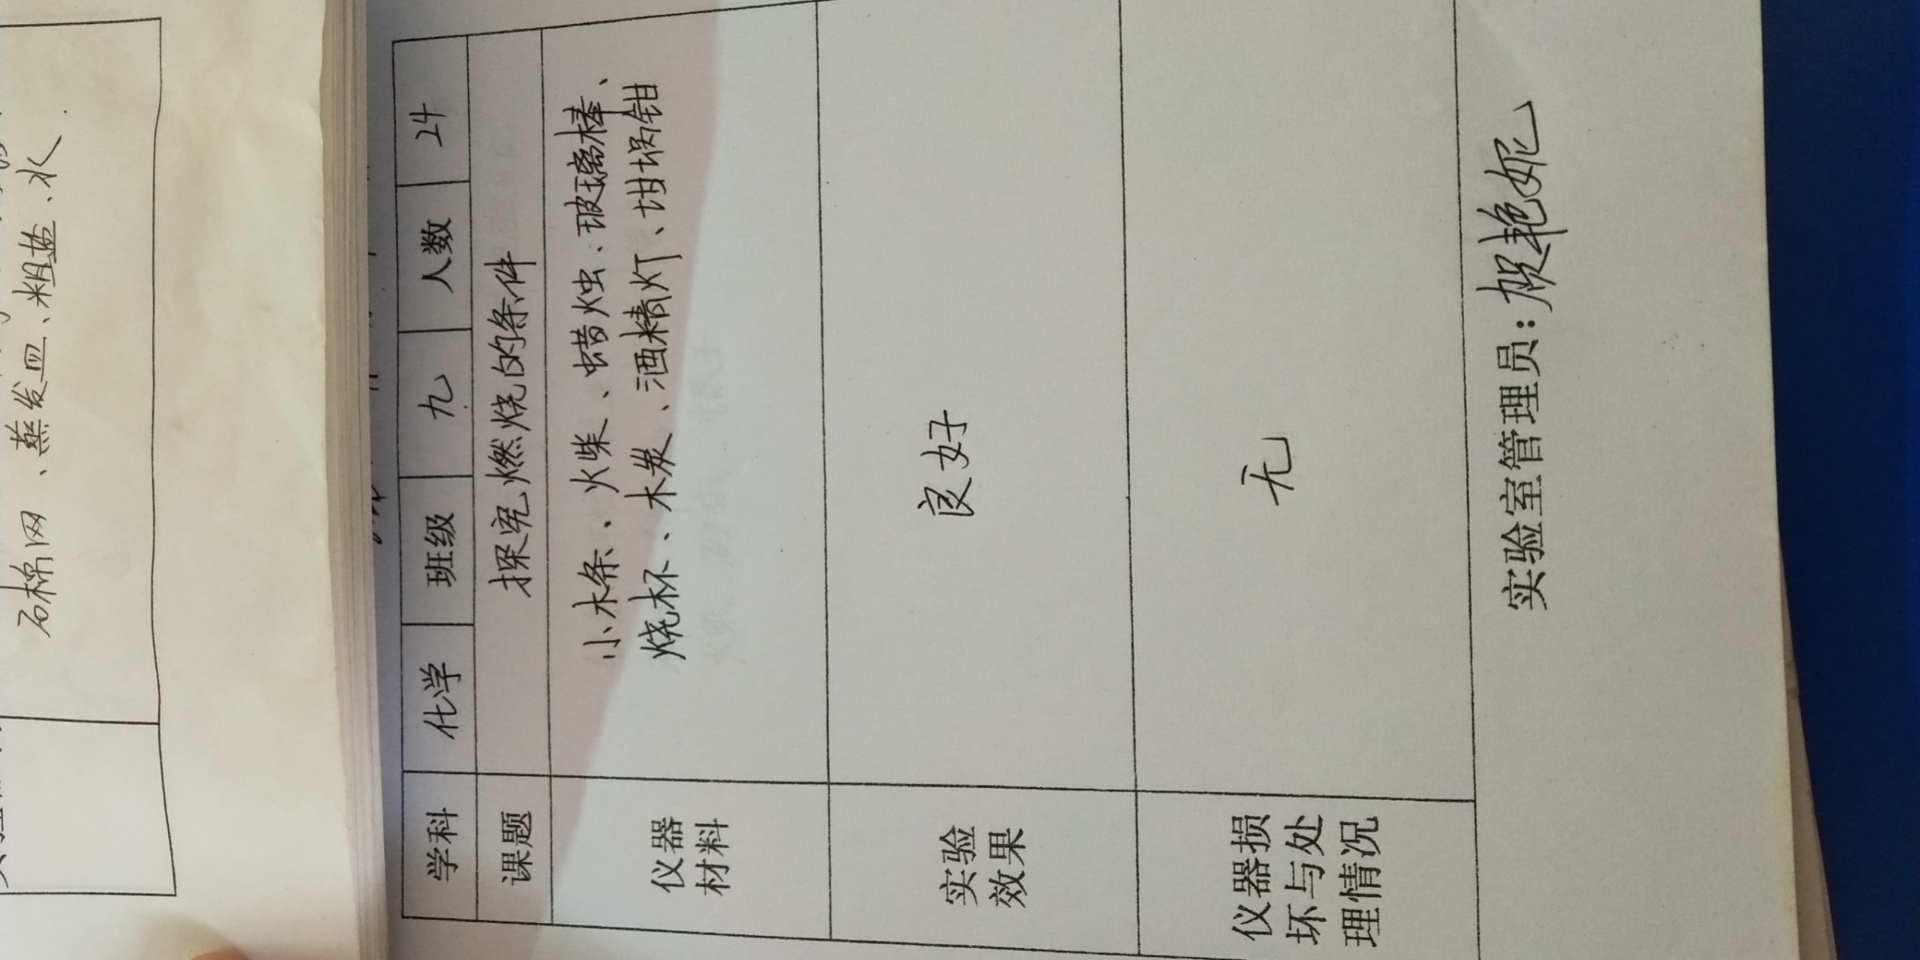 石棉网、蒸发皿、粗盐、水.
学科 化学 班级 九 人数 24
课题 探究燃烧的条件
仪器
材料
小木条、火柴、蜡烛、玻璃棒、
烧杯、木炭、酒精灯、坩埚钳
实验
效果
良好
仪器损
坏与处
理情况
无
实验室管理员:贺艳妮